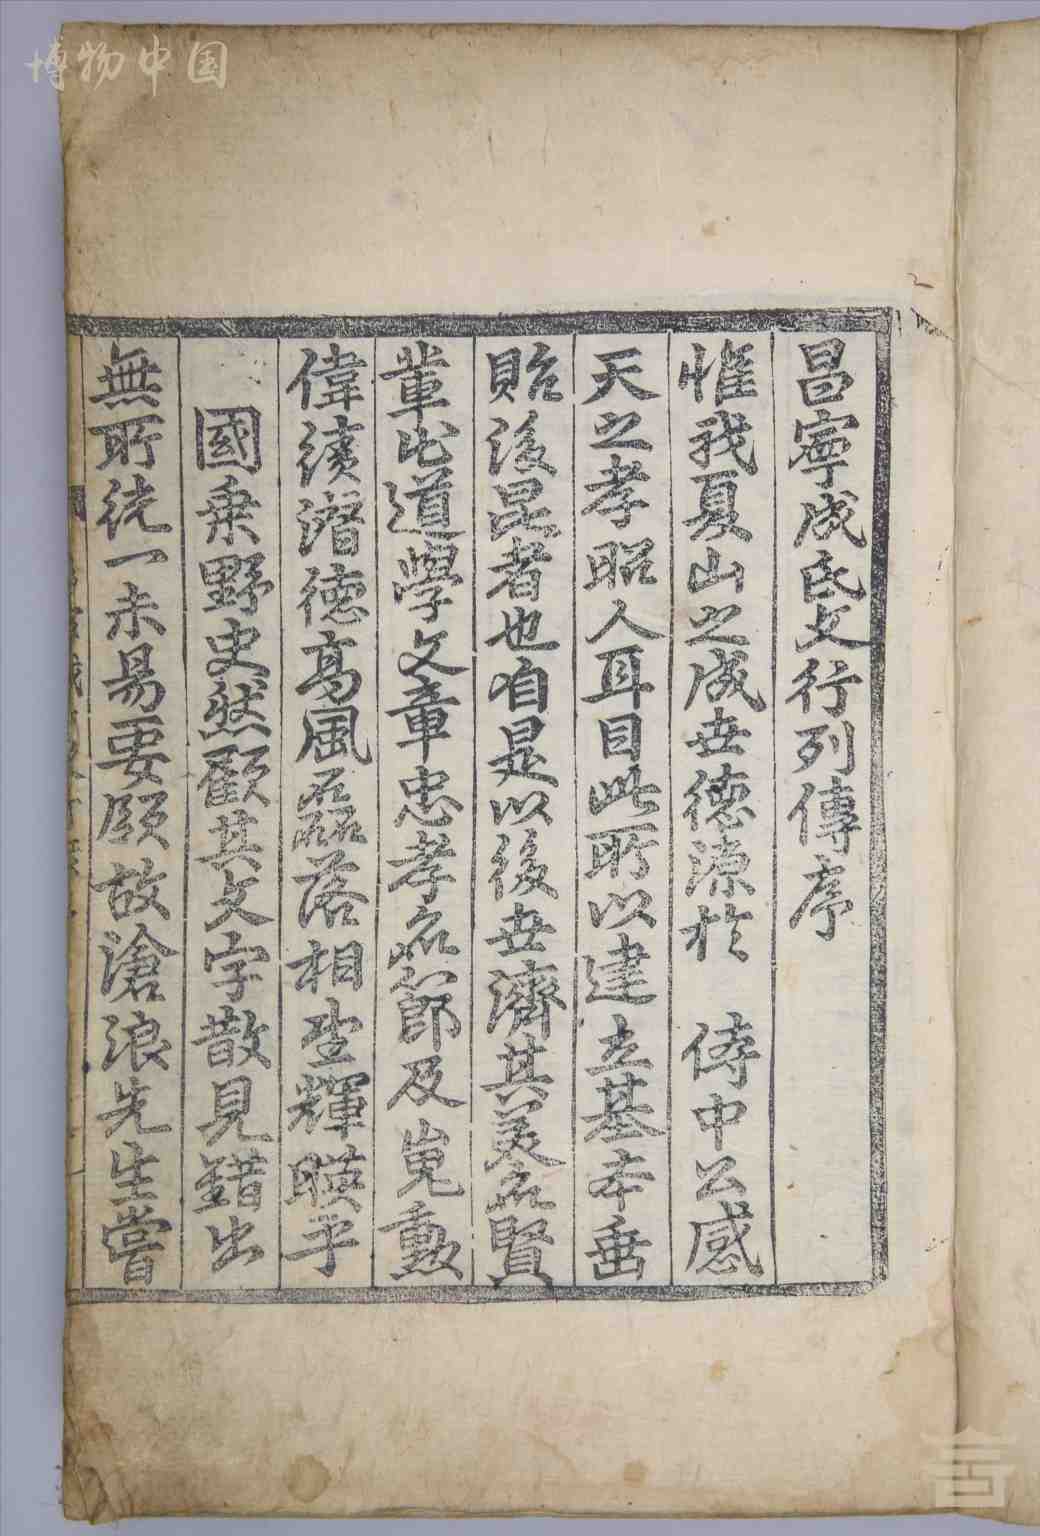 博物中国
昌寧成氏文行列傳序
惟我夏山之成世德源於 侍中公感
天之孝昭人耳目此所以建立基本垂
貽後昆者也自是以後世濟其美名賢
輩出道學文章忠孝名節及嵬勳
偉績潛德高風磊落相望輝暎乎
國乗野史然顧其文字散見錯出
無所統一未易要領故滄浪先生嘗